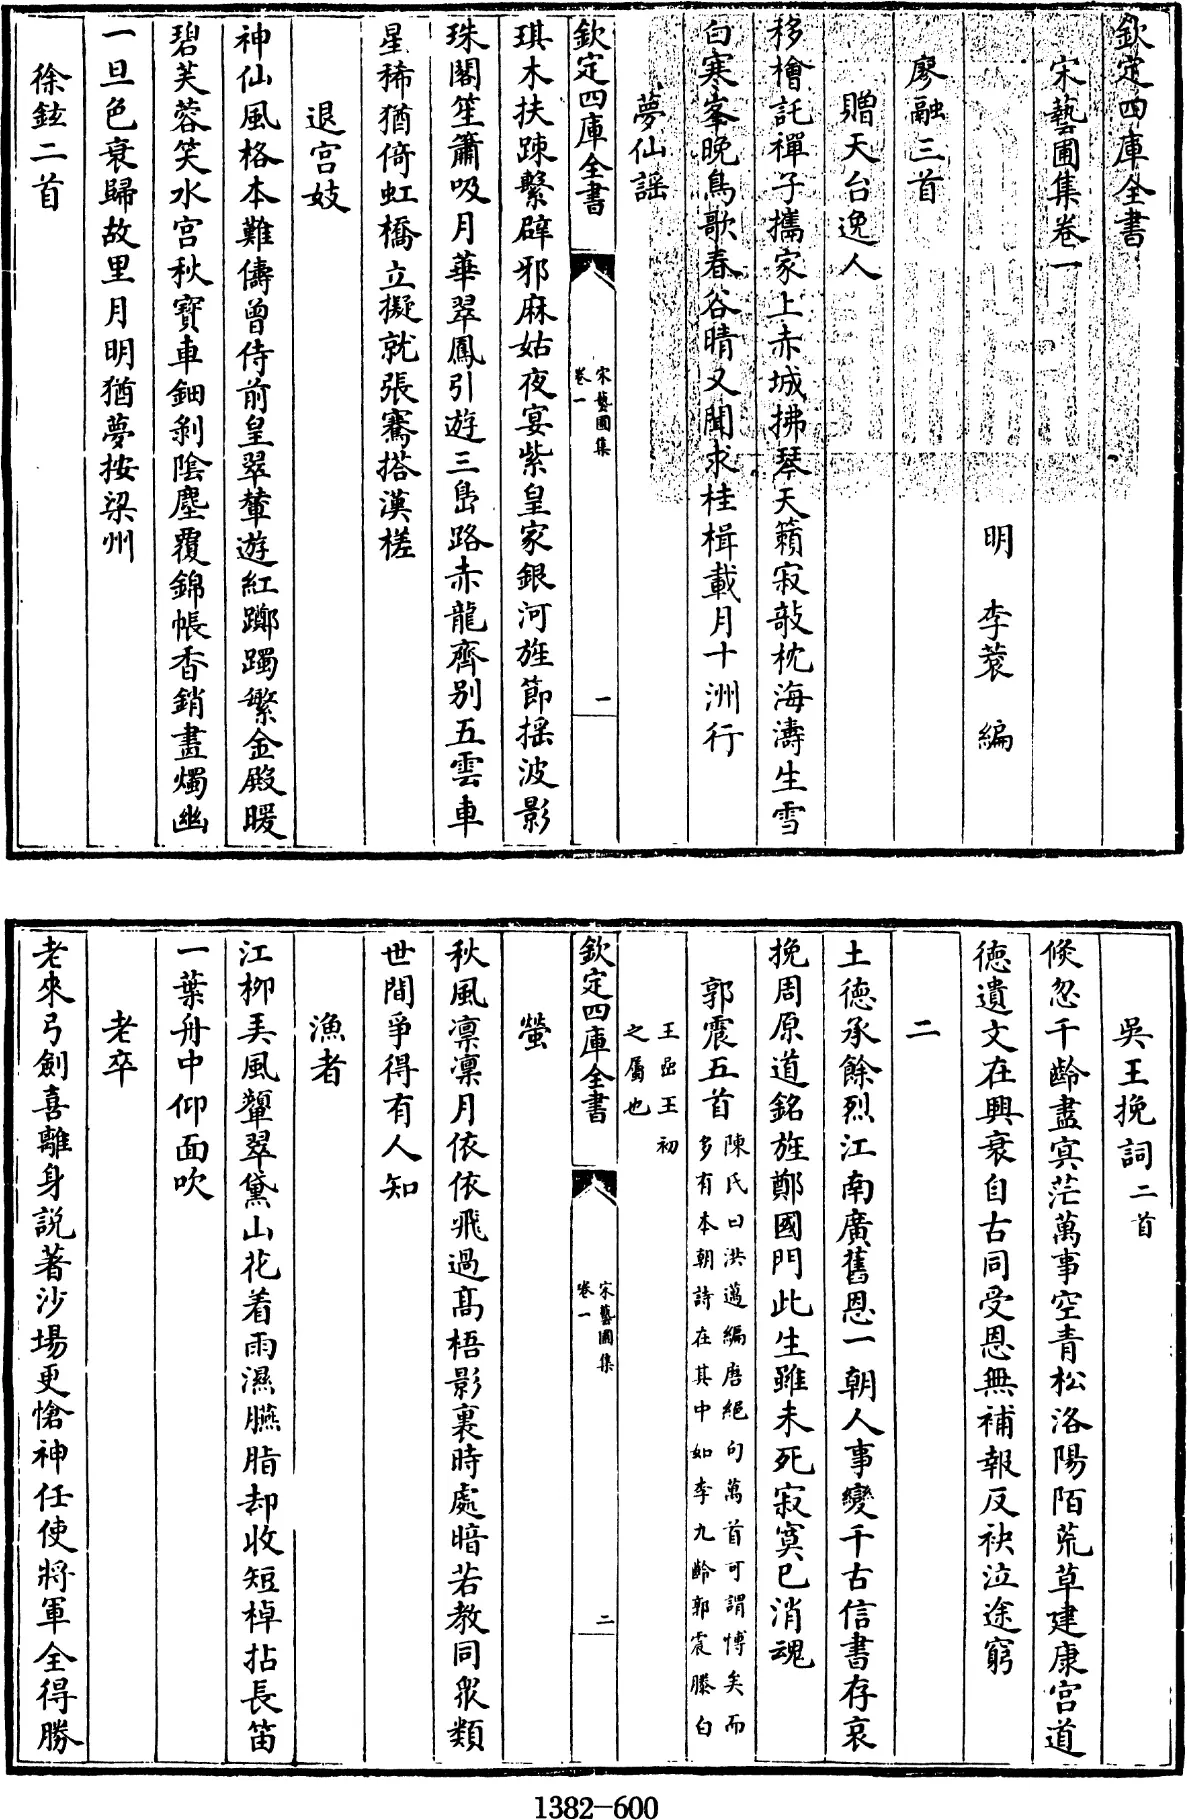 欽定四庫全書
宋藝圃集卷一
明 李蓘 編
廖融三首
贈天台逸人
移檜託禪子攜家上赤城拂琴天籟寂敧枕海濤生雪
白寒峯晚鳥歌春谷晴又聞求桂楫載月十洲行
夢仙謡
欽定四庫全書
宋藝圃集
卷一
一
琪木扶踈繫辟邪麻姑夜宴紫皇家銀河旌節揺波影
珠閣笙簫吸月華翠鳳引遊三島路赤龍齊别五雲車
星稀猶倚虹橋立擬就張騫搭漢槎
退宫妓
神仙風格本難儔曾侍前皇翠輦遊紅躑躅繁金殿暖
碧芙蓉笑水宫秋寶車鈿剥陰塵覆錦帳香銷畫燭幽
一旦色衰歸故里月明猶夢按梁州
徐鉉二首
吳王挽詞二首
倐忽千齡盡冥茫萬事空青松洛陽陌荒草建康宫道
徳遺文在興衰自古同受恩無補報反袂泣途窮
二
土徳承餘烈江南廣舊恩一朝人事變千古信書存哀
挽周原道銘旌鄭國門此生雖未死寂寞已消魂
郭震五首
陳氏曰洪邁編唐絶句萬首可謂博矣而
多有本朝詩在其中如李九齡郭震滕白
王嵒王初
之屬也
欽定四庫全書
宋藝圃集
卷一
二
螢
秋風凛凛月依依飛過髙梧影裏時處暗若教同衆類
世間爭得有人知
漁者
江柳弄風顰翠黛山花着雨濕臙脂却收短棹拈長笛
一葉舟中仰面吹
老卒
老來弓劍喜離身説著沙場更愴神任使將軍全得勝
1382—600